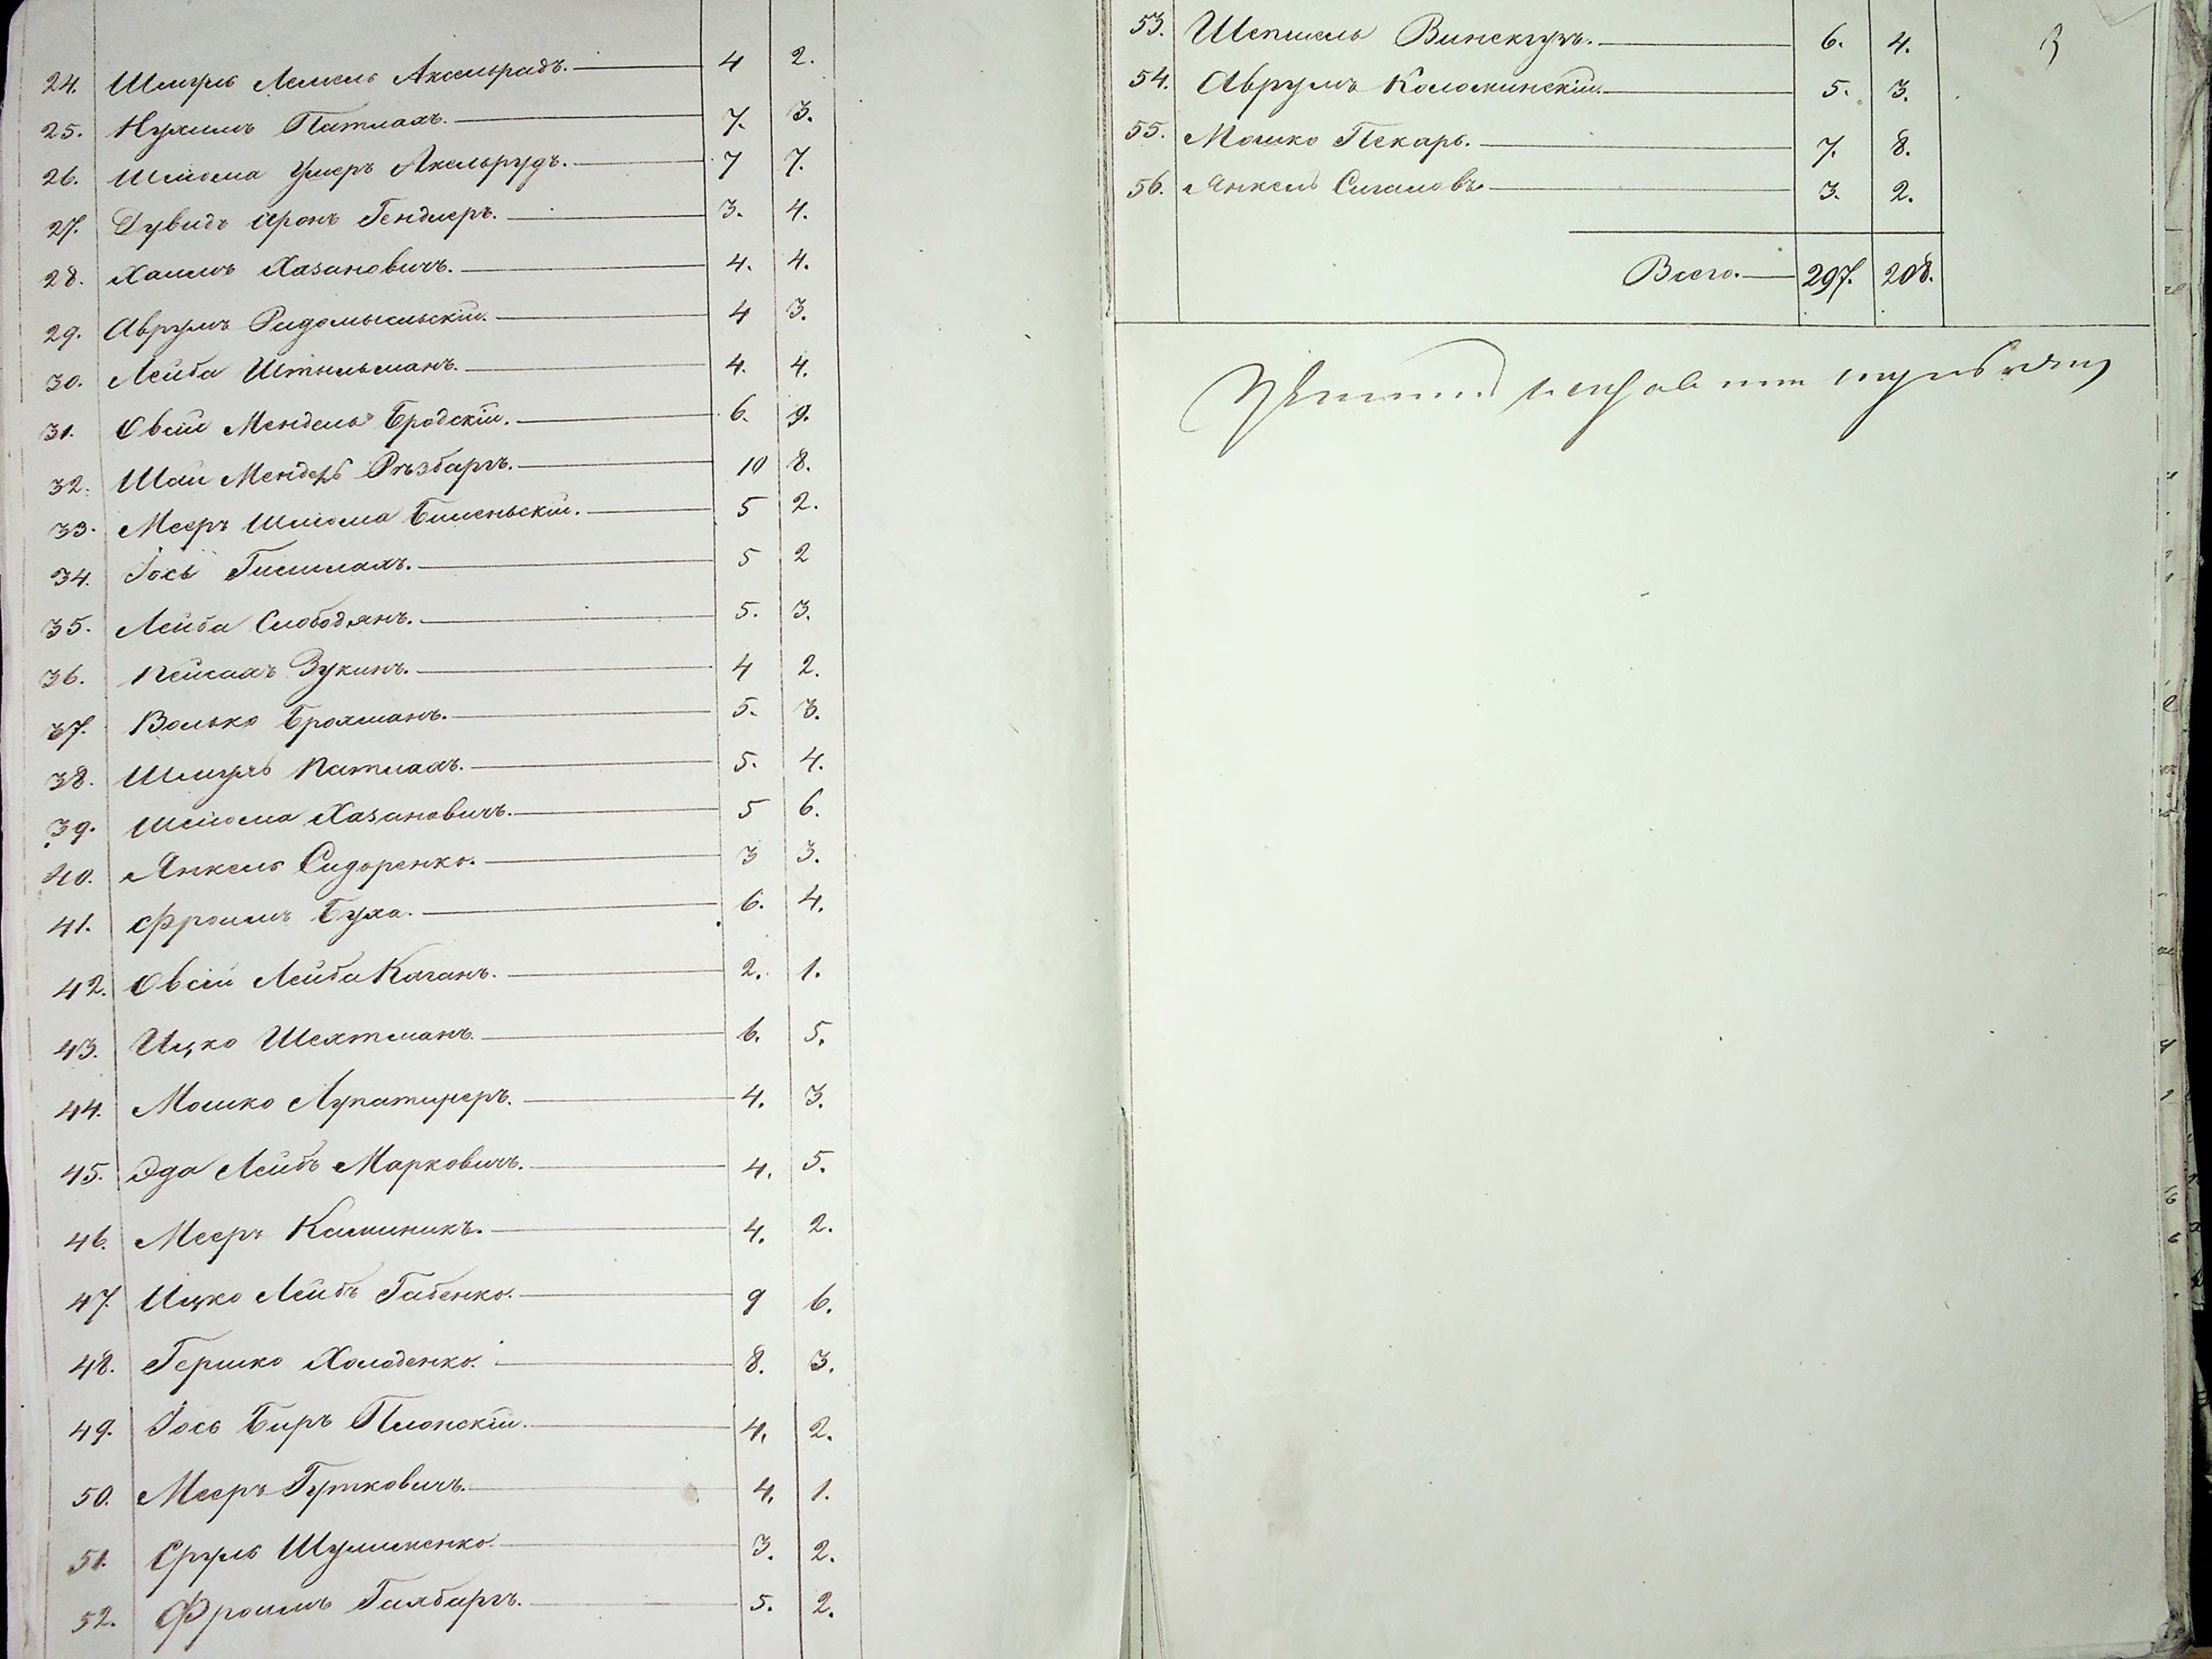 24. Шмуль Лемель Аксельрадъ. 4 2.
25. Нухимъ Патлахъ. 7. 3.
26. Шлиома Умеръ Аксельрудъ. 7 7.
27. Дувидъ Аронъ Гендлеръ. 3. 4.
28. Хаимъ Хазановичъ. 4. 4.
29. Аврумъ Радомысльскій. 4 3.
30. Лейба Штильманъ. 4. 4.
31. Овсій Мендель Бродскій. 6. 9.
32. Шаи Мендель 10 8.
33. Мееръ Шлиома 5 2.
34. Іось 5 2
35. Лейба Слободянъ. 5. 3.
36. Пейсахъ Зукинъ. 4 2.
37. Волько Брохманъ. 5. 3.
38. Шмуль Патлахъ. 5. 4.
39. Шлиома Хазановичъ. 5 6.
40. Янкель Сидоренко. 3 3.
41. Фроимъ Буха. 6. 4.
42. Овсій Лейба Каганъ. 2. 1.
43. Ицко Шехтманъ. 6. 5.
44. Мошко Лупатинеръ. 4. 3.
45. Эда Лейбъ Марковичъ. 4. 5.
46. Мееръ Калиникъ. 4. 2.
47. Ицко Лейбъ Габенко. 9 6.
48. Гершко Холоденко. 8. 3.
49. Іось Беръ Плонскій. 4. 2.
50. Мееръ Гутковичъ. 4. 1.
51. Сруль 3. 2.
52. Фроимъ 5. 2.
53. Шепшель Винокуръ. 6. 4.
54. Аврумъ Коломинскій. 5. 3.
55. Мошко Пекарь. 7. 8.
56. Янкель Сигаловъ 3. 2.
Всего. 297. 208.